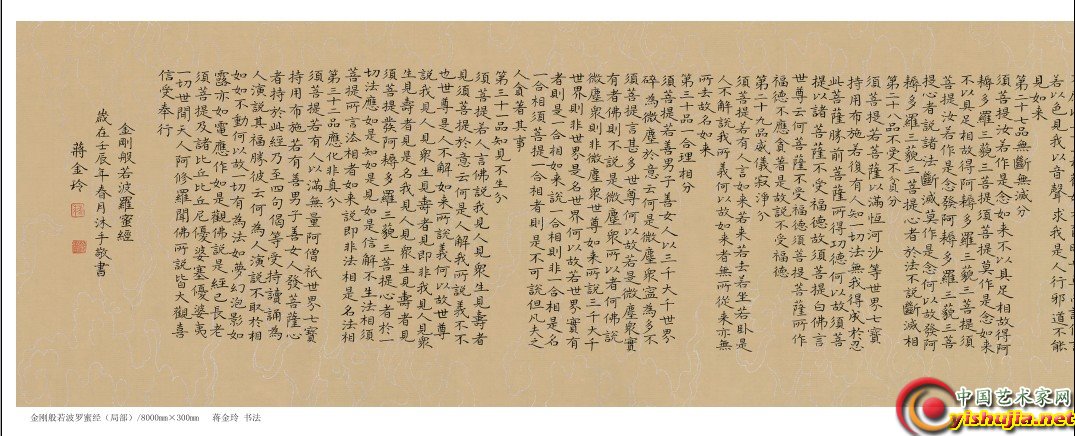 若以色見我以音聲求我是人行邪道不能
見如來
第二十七品無斷無滅分
須菩提汝若作是念如來不以具足相故得阿
耨多羅三藐三菩提須菩提莫作是念如來
不以具足相故得阿耨多羅三藐三菩提須
菩提汝若作是念發阿耨多羅三藐三菩
提心者說諸法斷滅莫作是念何以故發阿
耨多羅三藐三菩提心者於法不說斷滅相
第二十八品不受不貪分
須菩提若菩薩以滿恒河沙等世界七寶
持用布施若復有人知一切法無我得成於忍
此菩薩勝前菩薩所得功德何以故須菩
提以諸菩薩不受福德故須菩提白佛言
世尊云何菩薩不受福德須菩提菩薩所作
福德不應貪著是故說不受福德
第二十九品威儀寂淨分
須菩提若有人言如來若來若去若坐若卧是
人不解我所說義何以故如來者無所從來亦無
所去故名如來
第三十品一合理相分
須菩提若善男子善女人以三千大千世界
碎為微塵於意云何是微塵眾寧為多不
須菩提言甚多世尊何以故若是微塵眾實
有者佛則不說是微塵眾所以者何佛說
微塵眾則非微塵眾世尊如來所說三千大千
世界則非世界是名世界何以故若世界實有
者則是一合相如來說一合相則非一合相是名
一合相須菩提一合相者則是不可說但凡夫之
人貪著其事
第三十一品知見不生分
須菩提若人言佛說我見人見眾生見壽者
見須菩提於意云何是人解我所說義不不
也世尊是人不解如來所說義何以故世尊
說我見人見眾生見壽者見即非我見人見眾
生見壽者見是名我見人見眾生見壽者見
須菩提發阿耨多羅三藐三菩提心者於一
切法應如是知如是見如是信解不生法相須
菩提所言法相者如來說即非法相是名法相
第三十二品應化非真分
須菩提若有人以滿無量阿僧祇世界七寶
持用布施若有善男子善女人發菩薩心
者持於此經乃至四句偈等受持讀誦為
人演說其福勝彼云何為人演說不取於相
如如不動何以故一切有為法如夢幻泡影如
露亦如電應作如是觀佛說是經已長老
須菩提及諸比丘比丘尼優婆塞優婆夷
一切世間天人阿修羅聞佛所說皆大歡喜
信受奉行
金剛般若波羅蜜經
歲在壬辰年春月沐手敬書
蔣金玲
金刚般若波罗蜜经（局部）/8000mm×300mm 蒋金玲 书法
中国艺术家网
yishujia.net